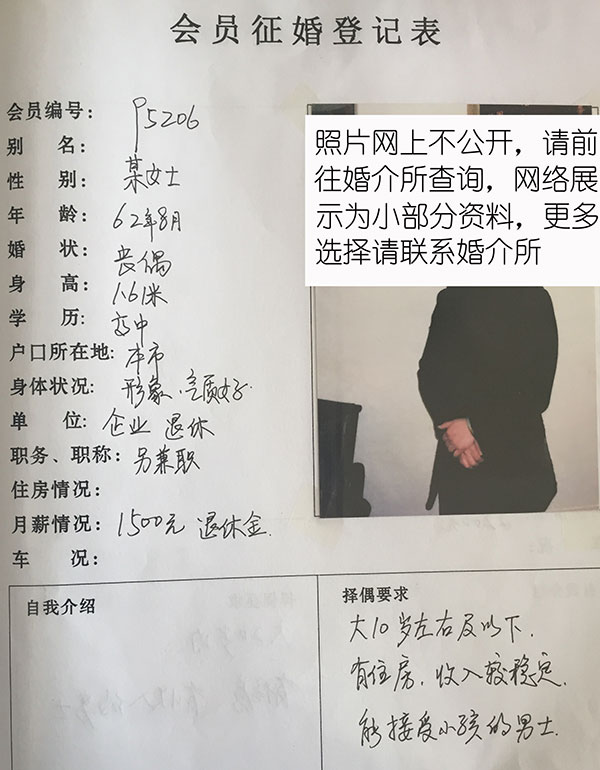 会员征婚登记表
会员编号：P5206
别 名：某女士
性 别：
年 龄：62年8月
婚 状：丧偶
身 高：1.61米
学 历：高中
户口所在地：本市
身体状况：形象、气质好.
单 位：企业 退休
职务、职称：另兼职
住房情况：
月薪情况：1500元 退休金.
车 况：
照片网上不公开，请前
往婚介所查询，网络展
示为小部分资料，更多
选择请联系婚介所
自我介绍
择偶要求
大10岁左右及以下.
有住房，收入较稳定.
能接受小孩的男士.